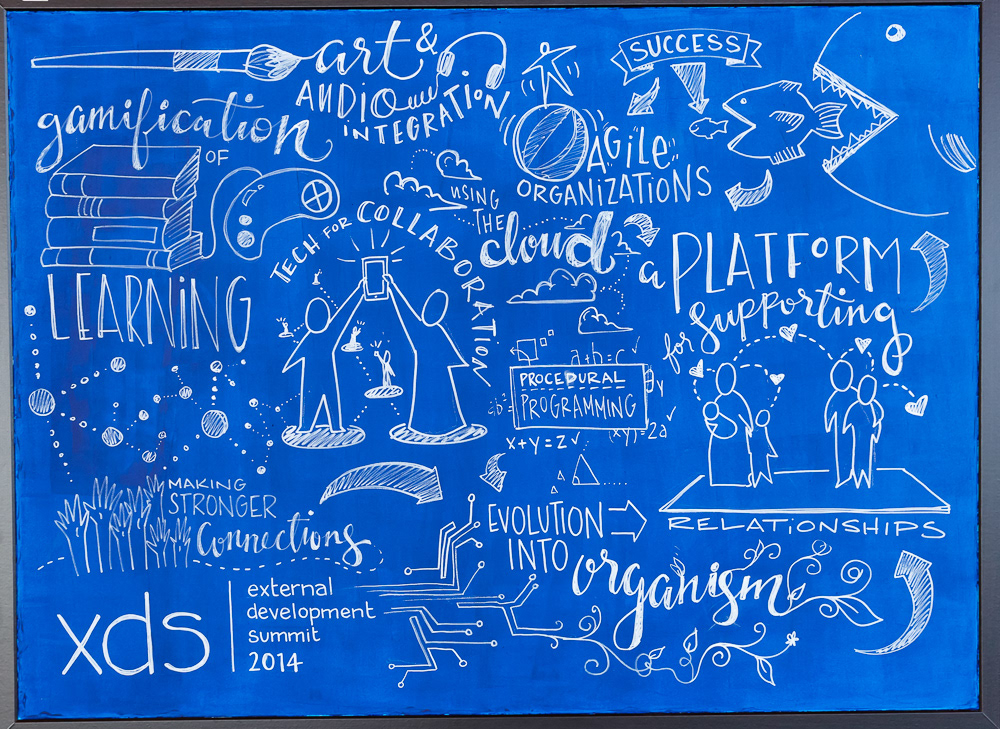 art &
AUDIO
INTEGRATION
SUCCESS
gamification
OF
LEARNING
AGILE
ORGANIZATIONS
TECH FOR COLLABORATION
USING
THE
cloud
a PLATFORM
for supporting
RELATIONSHIPS
a+b=c
PROCEDURAL
PROGRAMMING
x+y=z
(xy)=2a
MAKING
STRONGER
Connections
EVOLUTION
INTO
organism
xds
external
development
summit
2014